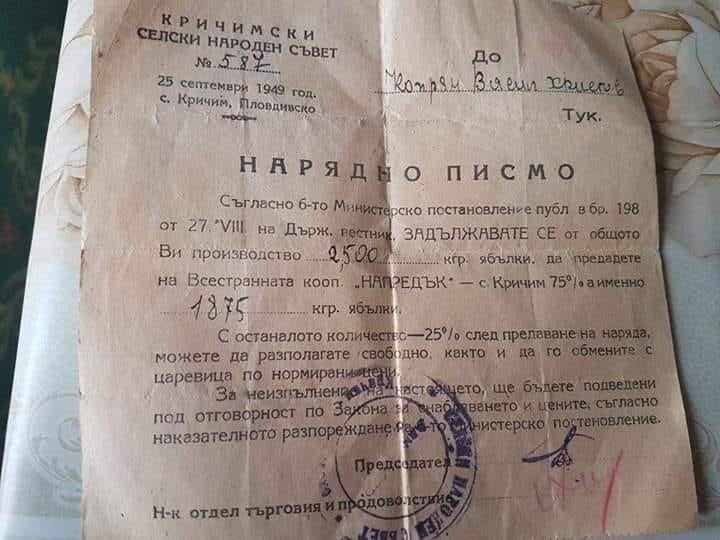 КРИЧИМСКИ
СЕЛСКИ НАРОДЕН СЪВЕТ
№ 587
25 септември 1949 год.
с. Кричим, Пловдивско
До
Тук.
НАРЯДНО ПИСМО
Съгласно 6-то Министерско постановление публ в бр. 198
от 27. VIII. на Държ. вестник, ЗАДЪЛЖАВАТЕ СЕ от общото
Ви производство 2,500 кгр. ябълки, да предадете
на Всестранната кооп. „НАПРЕДЪК“ — с. Кричим 75% а именно
1875 кгр. ябълки.
С останалото количество—25% след предаване на наряда,
можете да разполагате свободно, както и да го обмените с
царевица по нормирани цени.
За неизпълнение на настоящето, ще бъдете подведени
под отговорност по Закона за снабдяването и цените, съгласно
наказателното разпореждане на 6-то Министерско постановление.
Председател
Н-к отдел търговия и продоволствие